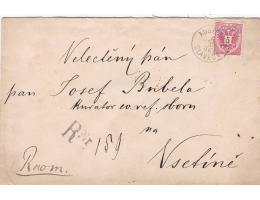 Velectěný pán
pan Josef Bubela
Kurator ev. ref. sboru
na
R Nr 159
Vsetíně
Rcom.
5